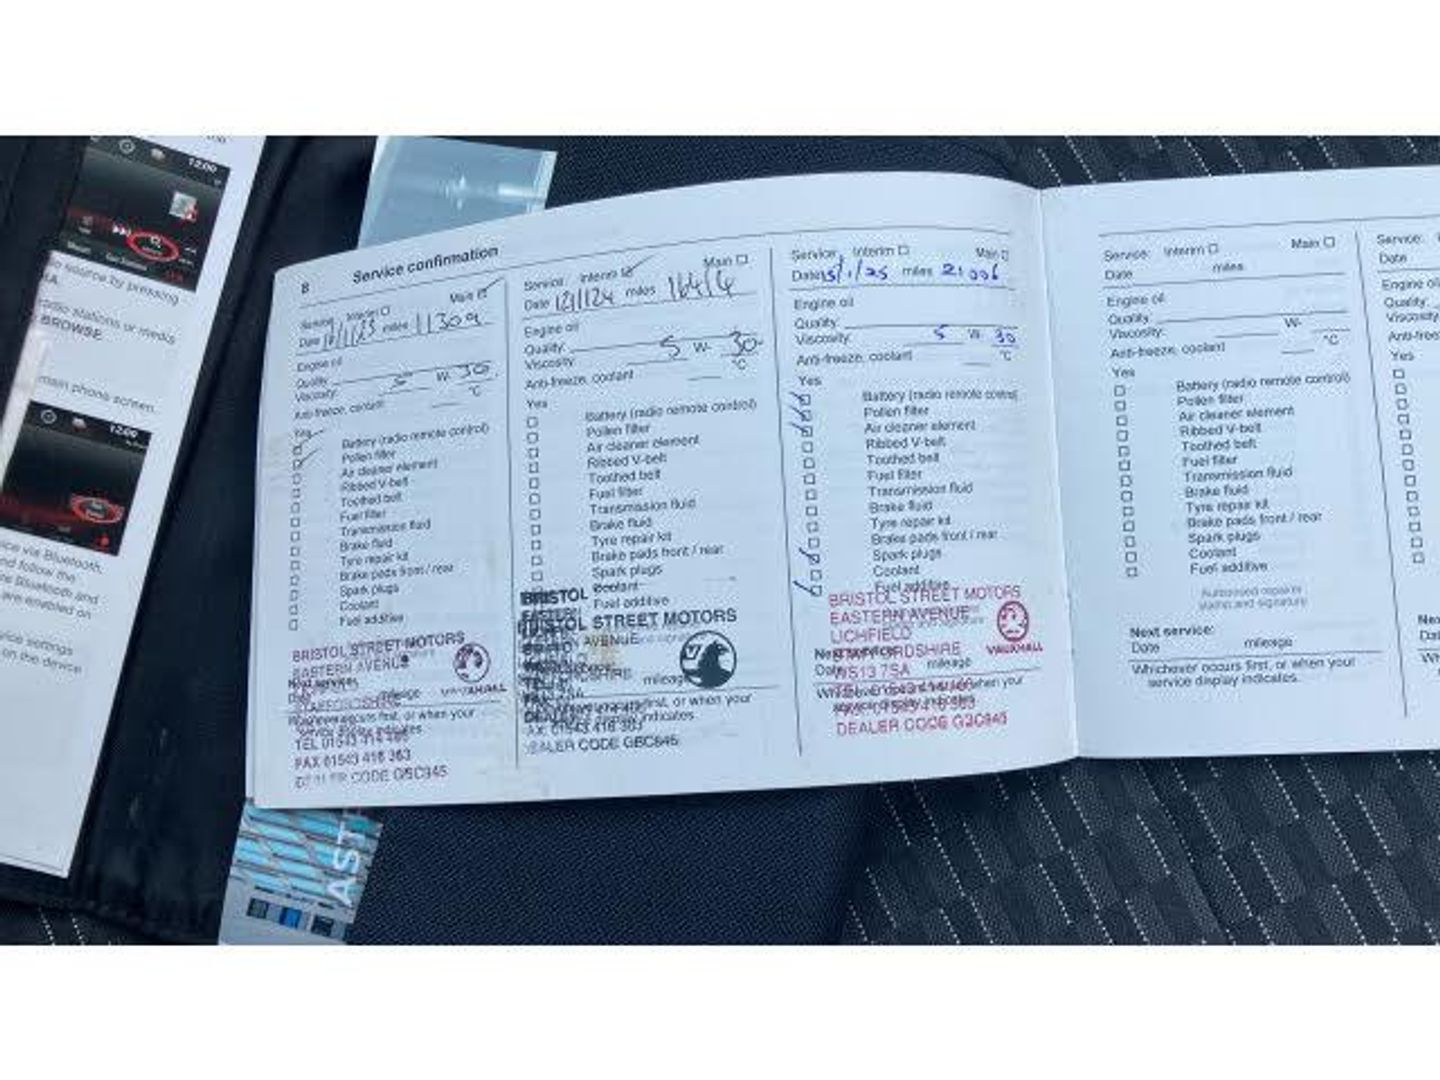 12:00
o source by pressing
IA.
radio stations or media
BROWSE.
main phone screen.
12:00
ice via Bluetooth,
nd follow the
are enabled on
vice settings
on the device
8 Service confirmation
Service: Interim Main
Date miles 11309
Engine oil
Quality
Viscosity: 5 W- 30
Anti-freeze, coolant °C
Yes
Battery (radio remote control)
Pollen filter
Air cleaner element
Ribbed V-belt
Toothed belt
Fuel filter
Transmission fluid
Brake fluid
Tyre repair kit
Brake pads front / rear
Spark plugs
Coolant
Fuel additive
BRISTOL STREET MOTORS
EASTERN AVENUE
STAFFORDSHIRE
mileage
VAUXHALL
occurs first, or when your
service display indicates.
TEL 01543 414
FAX 01543 416 363
DEALER CODE GBC645
Service: Interim Main
Date 12/1/24 miles 16414
Engine oil
Quality:
Viscosity: 5 W- 30
Anti-freeze, coolant °C
Yes
Battery (radio remote control)
Pollen filter
Air cleaner element
Ribbed V-belt
Toothed belt
Fuel filter
Transmission fluid
Brake fluid
Tyre repair kit
Brake pads front / rear
Spark plugs
Coolant
Fuel additive
BRISTOL
BRISTOL STREET MOTORS
EASTERN AVENUE
mileage
first, or when your
indicates.
FAX: 01543 416 363
DEALER CODE GBC645
Service: Interim Main
Date 15/1/25 miles 21006
Engine oil
Quality:
Viscosity: 5 W- 30
Anti-freeze, coolant °C
Yes
Battery (radio remote control)
Pollen filter
Air cleaner element
Ribbed V-belt
Toothed belt
Fuel filter
Transmission fluid
Brake fluid
Tyre repair kit
Brake pads front / rear
Spark plugs
Coolant
Fuel additive
BRISTOL STREET MOTORS
EASTERN AVENUE
LICHFIELD
STAFFORDSHIRE
VAUXHALL
Next service:
Date mileage
WS13 7SA
when your
FAX: 01543 416 363
DEALER CODE GBC645
Service: Interim Main
Date miles
Engine oil
Quality:
Viscosity: W-
Anti-freeze, coolant °C
Yes
Battery (radio remote control)
Pollen filter
Air cleaner element
Ribbed V-belt
Toothed belt
Fuel filter
Transmission fluid
Brake fluid
Tyre repair kit
Brake pads front / rear
Spark plugs
Coolant
Fuel additive
Authorised repairers
stamp and signature
Next service:
Date mileage
Whichever occurs first, or when your
service display indicates.
Service:
Date
Engine oil
Quality:
Viscosity
Anti-freez
Yes
Date
AST